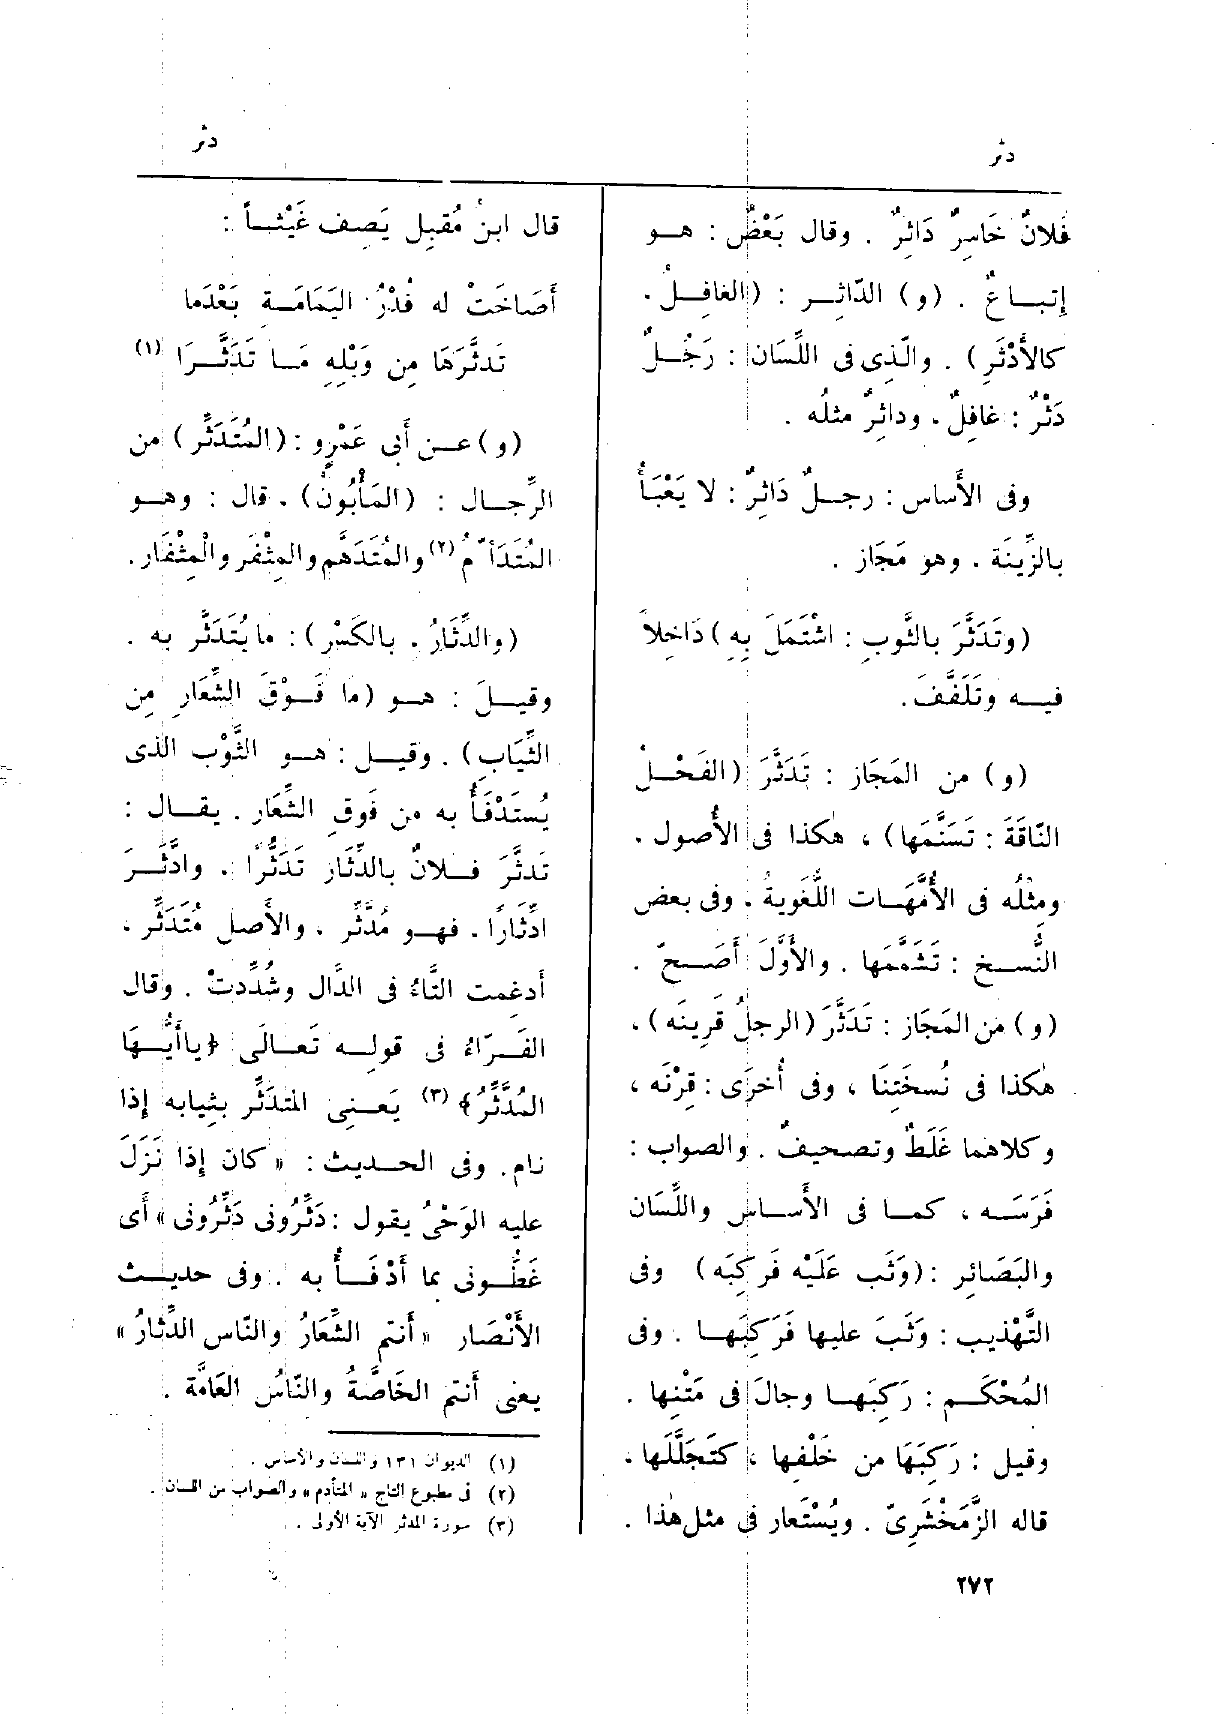 دثر
دثر
فلانٌ خَاسِرٌ دَاثِرٌ . وقال بَعْضٌ : هــو
إتبــاعٌ . (و) الدّاثِــر : (الغافِلُ .
كالأَدْثَرِ) . والّذى فى اللِّسَان : رَجُــلٌ
دَثْرٌ : غافِلٌ ، وداثِرٌ مثلُه .
وفى الأَساس : رجــلٌ دَاثِرٌ : لا يَعْبَأُ
بالزِّينَة . وهو مَجَاز .
(وتَدَثَّرَ بالثَّوبِ : اشْتَمَلَ بِهِ) دَاخِلاً
فيــه وتَلَفَّفَ .
(و) من المَجَاز : تَدَثَّرَ (الفَحْــلُ
النّاقَةَ : تَسَنَّمَها) ، هٰكذا فى الأُصول .
ومثلُه فى الأُمَّهــات اللُّغَوِيةُ . وفى بعض
النُّســخِ : تَشَمَّمَها . والأَوَّلَ أَصَــحّ .
(و) من المَجَاز : تَدَثَّرَ (الرجلُ قَرِينَه) ،
هٰكذا فى نُسخَتِنَا ، وفى أُخرَى : قِرْنَه ،
وكلاهما غَلَطٌ وتصحيفٌ . والصواب :
فَرَسَــه ، كمــا فى الأَســاس واللِّسَان
والبَصَائِر : (وَثَب عَلَيْه فَرَكِبَه) وفى
التَّهْذِيب : وَثَبَ عليها فَرَكِبَهــا . وفى
المُحْكَــم : رَكِبَهــا وجالَ فى مَتْنِها .
وقيل : رَكِبَهَا من خَلْفِها ، كتَجَلَّلَها ،
قاله الزَّمَخْشَرِىّ . ويُسْتَعار فى مثل هٰذا .
قال ابنُ مُقبِل يَصِف غَيْثــاً :
أَصَاخَتْ له فُدْرُ اليَمَامَــة بَعْدَما
تَدَثَّرَهَا مِن وَبْلِهِ مَــا تَدَثَّــرَا (١)
(و) عــن أَبى عَمْرٍو : (المُتَدَثِّر) من
الرِّجــال : (المَأْبُونُ) . قال : وهــو
المُتَدَأِّمُ (٢) والمُتَدَهَّم والمِثْفَر والْمِثْفَار.
(والدِّثَارُ . بالكَسْرِ) : ما يُتَدَثَّر به .
وقيــلَ : هــو (ما فَــوْقَ الشِّعَارِ مِن
الثِّيَابِ) . وقيــل : هــو الثَّوْب الذى
يُستَدْفَأُ به من فَوقِ الشِّعَار . يقــال :
تَدثَّرَ فــلانٌ بالدِّثَار تَدَثُّرًا . وادَّثَّــرَ
ادِّثَارًا . فهــو مُدَّثِّر . والأَصل مُتَدَثِّر ،
أُدغمت التَّاءُ فى الدَّال وشُدِّدتْ . وقال
الفَــرّاءُ فى قولِــه تَعــالَى ﴿ياأَيُّــهَا
المُدَّثِّرُ﴾ (٣) يَعــنِى المتدَثِّر بثِيابه إِذا
نام. وفى الحــديث : « كان إِذا نَزَلَ
عليه الوَحْىُ يقول : دَثِّرُونى دَثِّرُونى » أَى
غَطُّــونى بما أَدْفَــأُ به . وفى حديث
الأَنْصَار « أَنتم الشِّعَارُ والنّاس الدِّثَارُ »
يعنى أَنتم الخَاصَّةُ والنّاسُ العَامَّة .
(١) الديوان ١٣١ واللسان والأساس .
(٢) فى مطبوع التاج « المتأدم » والصواب من اللسان .
(٣) سورة المدثر الآية الأولى .
٢٧٢